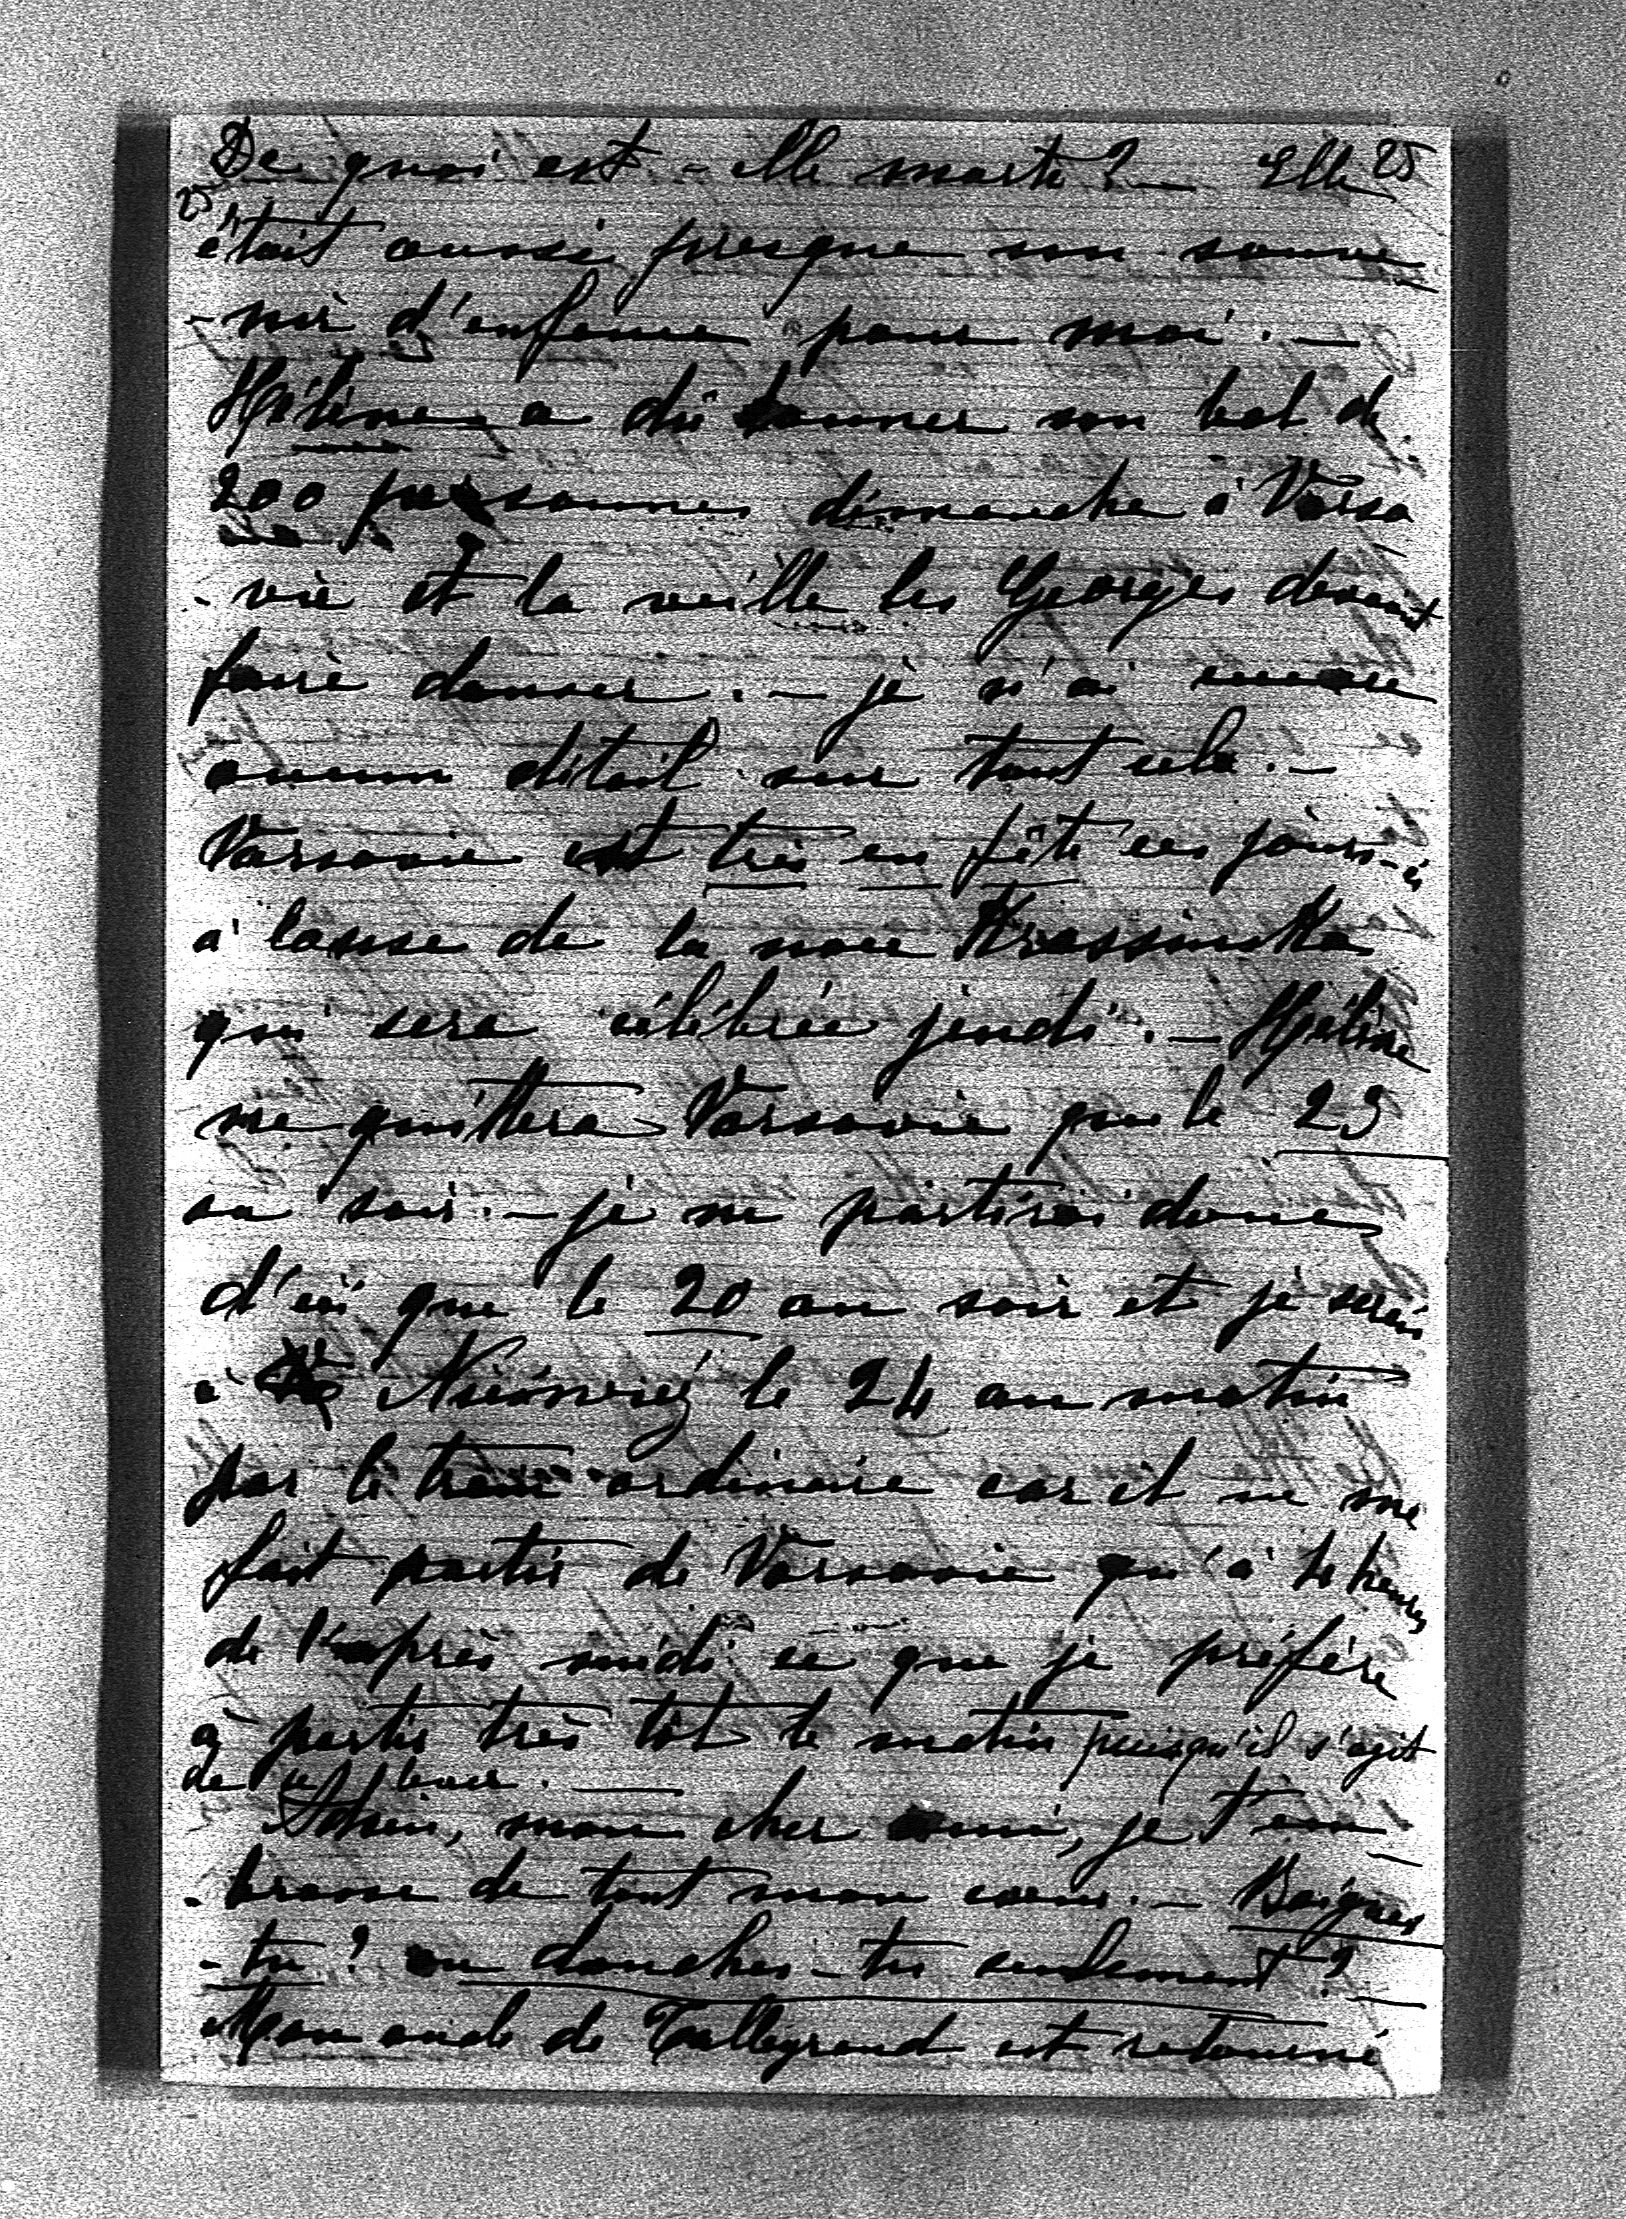 25
De quoi est-elle morte? — Elle 25
était aussi presque un souve
-nir d'enfance pour moi. —
Hélène a dû donner son bal de
200 personnes dimanche à Varso
-vie et la veille les Georges devant
faire danser. — je n'ai encore
aucun détail sur tout cela. —
Varsovie est très en fête ces jours-ci
à cause de la noce Krassinska
qui sera célébrée jeudi. — Hélène
ne quittera Varsovie que le 23
au soir. — je ne partirai donc
d'ici que le 20 au soir et je serai
à Nieswiez le 24 au matin
par le train ordinaire car il ne me
fait partir de Varsovie qu'à heures
de l'après midi ce que je préfère
à partir très tôt le matin puisqu'il s'agit
de se lever. —
Adieu, mon cher ami, je t'em
-brasse de tout mon cœur. — Baignes
-tu? ou douches-tu seulement? —
Mon oncle de Talleyrand est retourné